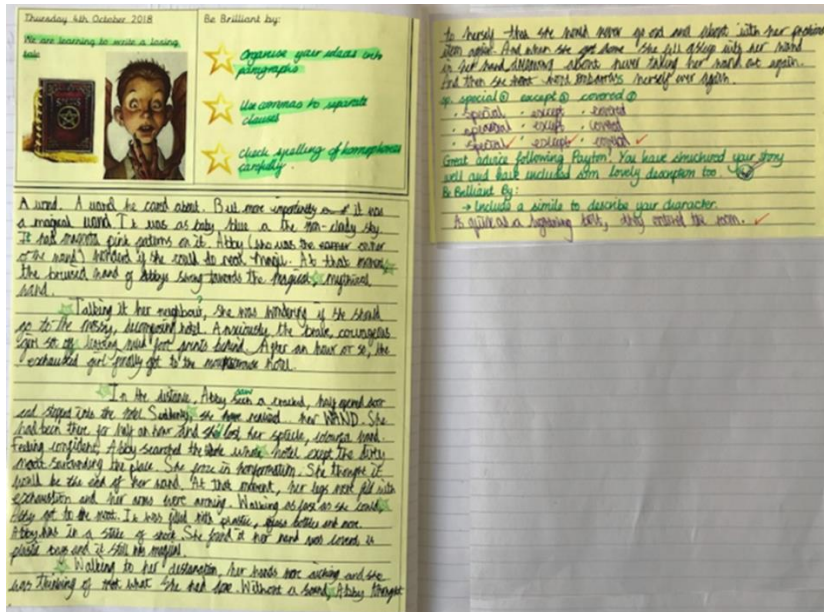 Thursday 4th October 2018
We are learning to write a losing
tale
Be Brilliant by:
Organise your ideas into
paragraphs
Use commas to separate
clauses
Check spelling of homophones
carefully.
A wand. A wand he cared about. But more importantly it was
a magical wand. It was as baby blue a the non-cloudy sky.
It had magenta pink patterns on it. Abby (who was the owner
of the wand) wonderd if she could do real magic. At that moment
the bruised hand of Abbys swung towards the magical, mythical
wand.
Talking it her neighbour, she was wondering if she should
go to the messy, decomposing hotel. Anxiously the brave, courageous
girl set off leaving mud foot prints behind. After an hour or so, the
exhausted girl finally got to the hotel.
In the distance, Abby seen saw a cracked, half opend door
and steped into the hotel. Suddenly, she realised her WAND. She
had been there for half an hour and she'd lost her special, coloured wand.
Feeling confident, Abby searched the whole hotel except the dirty
moat surrounding the place. She froze in She thought it
would be the end of her wand. At that moment, her legs were filld with
exhaustion and her arms were arching. Walking as fast as she could,
Abby got to the moat. It was filled with plastic, glass bottles and more.
Abby was in a state of shock. She found it her wand was coverd in
plastic bags and it still was magical.
Walking to her destanation, her hands were aiching and she
was thinking of what she had done. Without a sound, Abby thought
to herself that she would never go out and about with her precious
item again. And when she got home she fell asleep with her wand
in her hand dreaming about never taking her wand out again.
And then she wont embarrass herself ever again.
sp. special except covered
special except covered
special except covered
special except covered
Great advice following Payton! You have structured your story
well and have included som lovely description too.
Be Brilliant By:
→ Include a simile to describe your character.
As quick as a lightning bolt, Abby entered the room.